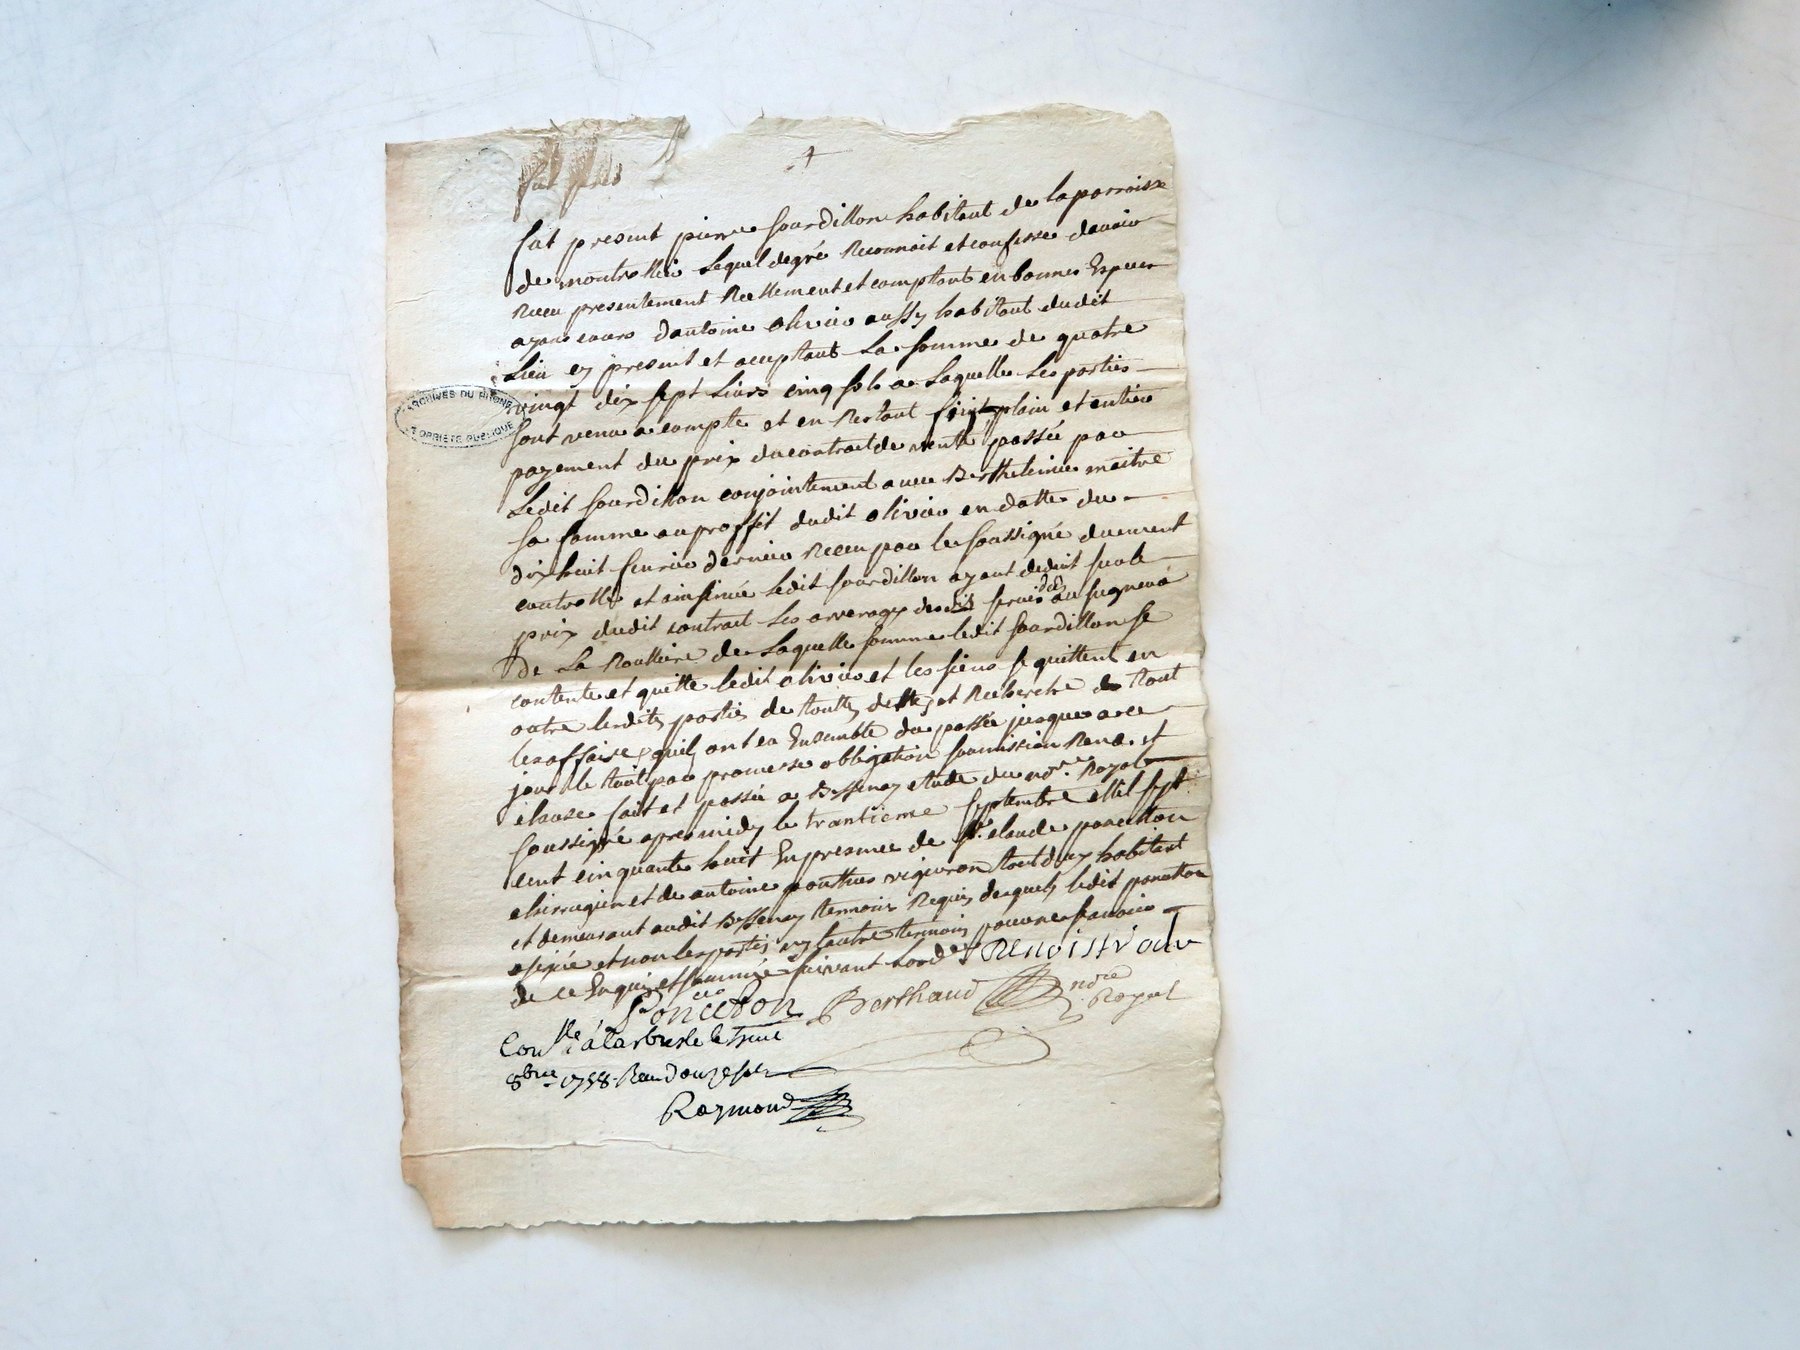 fut pres
fut present pierre sourdillon habitant de la parroisse
de montrottié lequel de gré Reconnoit et confesse davoir
Receu presentement Reellement et comptant en bonnes Especes
ayant cours dantoine olivier aussy habitant dudit
Lieu ey present et aceptant La somme de quatre
vingt dix sept Livres cinq sols a Laquelle Les parties
sont venu a compte et en Restant faint plain et entier
payement du prix du contract de vente passée par
Ledit sourdillon conjointement avec Berthelmie maitre
sa famme au proffit dudit olivier en datte du
dix huit feurier dernier Receu par le soussigné duement
controllé et insinué ledit sourdillon ayant deduit sur le
prix dudit contract Les arrerages des frais dus au segneur
de La Roulliere de Laquelle somme ledit sourdillon se
contente et quitte ledit olivier et les siens se quittent en
outre lesdites parties de toutes dettes et Recherche de tout
les affaire quil ont eu Ensemble du passée jusques a ce
jour le tout par promesse obligation soumission Ren. et
clause fait et passée a Bessenay etude du nore. Royal
soussigné apres midy le trantieme septembre mil sept
cent cinquante huit En presence de sr. claude poncetton
chirurgien et de antoine ponthus vigneron tout deux habitant
et demeurant audit Bessenay temoins Requis desquels ledit poncetton
a signé et non les parties ny lautre temoin pour ne sçavoir
de ce Enquis et sommé suivant lord.
Poncetton Berthaud nore Royal
Conllé à Larbresle le trois
8bre 1758. Reçu douze sols
Raymond
ARCHIVES DU RHONE
PROPRIETE PUBLIQUE